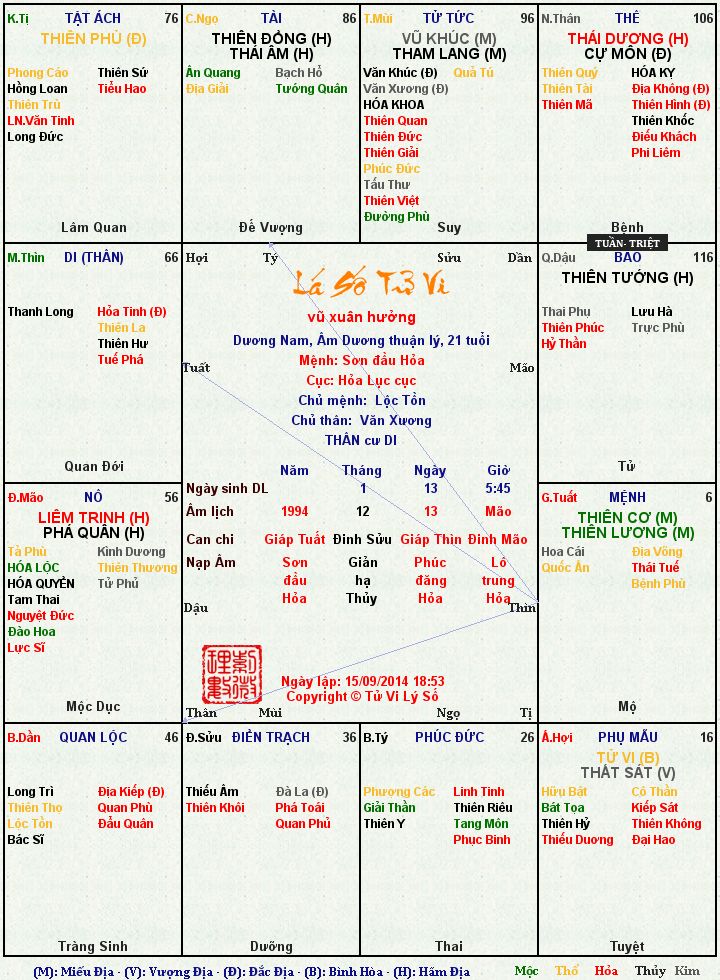 K.Tị TẬT ÁCH 76
THIÊN PHỦ (Đ)
Phong Cáo Thiên Sứ
Hồng Loan Tiểu Hao
Thiên Trù
LN.Văn Tinh
Long Đức
Lâm Quan
C.Ngọ TÀI 86
THIÊN ĐỒNG (H)
THÁI ÂM (H)
Ân Quang Bạch Hổ
Địa Giải Tướng Quân
Đế Vượng
T.Mùi TỬ TỨC 96
VŨ KHÚC (M)
THAM LANG (M)
Văn Khúc (Đ) Quả Tú
Văn Xương (Đ)
HÓA KHOA
Thiên Quan
Thiên Đức
Thiên Giải
Phúc Đức
Tấu Thư
Thiên Việt
Đường Phù
Suy
N.Thân THÊ 106
THÁI DƯƠNG (H)
CỰ MÔN (Đ)
Thiên Quý HÓA KỴ
Thiên Tài Địa Không (Đ)
Thiên Mã Thiên Hình (Đ)
Thiên Khốc
Điếu Khách
Phi Liêm
Bệnh
TUẦN- TRIỆT
M.Thìn DI (THÂN) 66
Thanh Long Hỏa Tinh (Đ)
Thiên La
Thiên Hư
Tuế Phá
Quan Đới
Hợi Tý Sửu Dần
Lá Số Tử Vi
vũ xuân hưởng
Dương Nam, Âm Dương thuận lý, 21 tuổi
Tuất Mệnh: Sơn đầu Hỏa Mão
Cục: Hỏa Lục cục
Chủ mệnh: Lộc Tồn
Chủ thân: Văn Xương
THÂN cư DI
Năm Tháng Ngày Giờ
Ngày sinh DL 1 13 5:45
Âm lịch 1994 12 13 Mão
Can chi Giáp Tuất Đinh Sửu Giáp Thìn Đinh Mão
Nạp Âm Sơn Giản Phúc Lô
đầu hạ đăng trung
Hỏa Thủy Hỏa Hỏa
Dậu Thìn
Ngày lập: 15/09/2014 18:53
Copyright © Tử Vi Lý Số
Thân Mùi Ngọ Tị
Q.Dậu BÀO 116
THIÊN TƯỚNG (H)
Thai Phụ Lưu Hà
Thiên Phúc Trực Phù
Hỷ Thần
Tử
Đ.Mão NÔ 56
LIÊM TRINH (H)
PHÁ QUÂN (H)
Tả Phù Kình Dương
HÓA LỘC Thiên Thương
HÓA QUYỀN Tử Phủ
Tam Thai
Nguyệt Đức
Đào Hoa
Lực Sĩ
Mộc Dục
G.Tuất MỆNH 6
THIÊN CƠ (M)
THIÊN LƯƠNG (M)
Hoa Cái Địa Võng
Quốc Ấn Thái Tuế
Bệnh Phù
Mộ
B.Dần QUAN LỘC 46
Long Trì Địa Kiếp (Đ)
Thiên Thọ Quan Phù
Lộc Tồn Đẩu Quân
Bác Sĩ
Tràng Sinh
Đ.Sửu ĐIỀN TRẠCH 36
Thiếu Âm Đà La (Đ)
Thiên Khôi Phá Toái
Quan Phủ
Dưỡng
B.Tý PHÚC ĐỨC 26
Phượng Các Linh Tinh
Giải Thần Thiên Riêu
Thiên Y Tang Môn
Phục Binh
Thai
Ấ.Hợi PHỤ MẪU 16
TỬ VI (B)
THẤT SÁT (V)
Hữu Bật Cô Thần
Bát Tọa Kiếp Sát
Thiên Hỷ Thiên Không
Thiếu Dương Đại Hao
Tuyệt
(M): Miếu Địa - (V): Vượng Địa - (Đ): Đắc Địa - (B): Bình Hòa - (H): Hãm Địa
Mộc Thổ Hỏa Thủy Kim